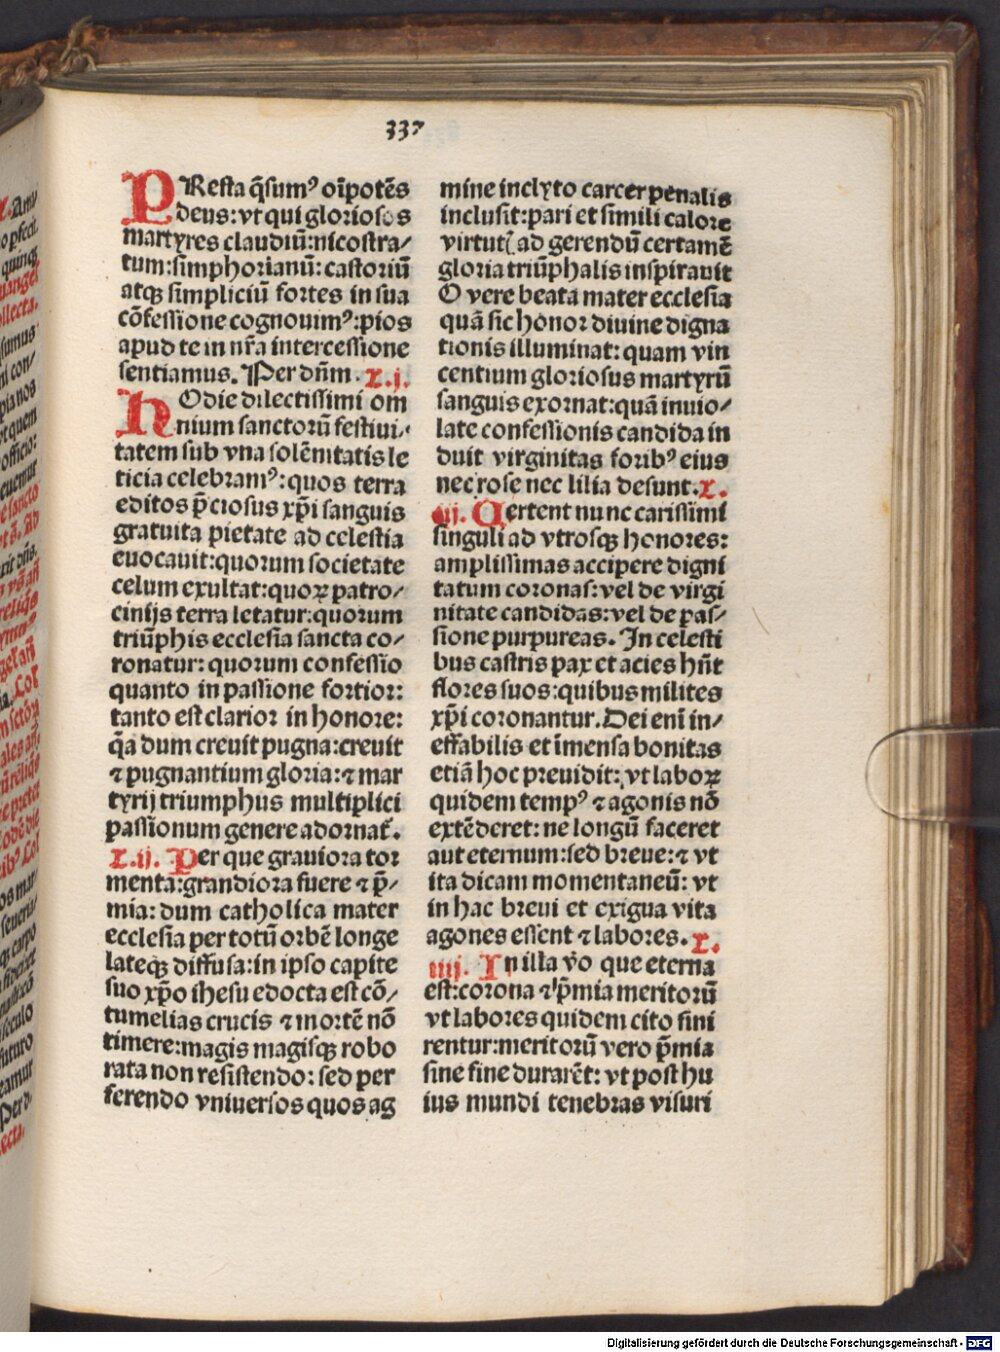 337
PResta q̄sumꝰ oīpotēs
deus: vt qui gloriosos
martyres claudiū: nicostra/
tum: simphorianū: castoriū
atqꝫ simpliciū fortes in sua
cōfessione cognouimꝰ: pios
apud te in nr̄a intercessione
sentiamus. Per dn̄m. L. j.
hOdie dilectissimi om
nium sanctorū festiui/
tatem sub vna solēnitatis le
ticia celebramꝰ: quos terra
editos p̄ciosus xp̄i sanguis
gratuita pietate ad celestia
euocauit: quorum societate
celum exultat: quoꝝ patro/
cinijs terra letatur: quorum
triūphis ecclesia sancta co/
ronatur: quorum confessio
quanto in passione fortior:
tanto est clarior in honore:
q̄a dum creuit pugna: creuit
⁊ pugnantium gloria: ⁊ mar
tyrij triumphus multiplici
passionum genere adornat̄.
L. ij. Per que grauiora tor
menta: grandiora fuere ⁊ p̄/
mia: dum catholica mater
ecclesia per totū orbē longe
lateqꝫ diffusa: in ipso capite
suo xp̄o ihesu edocta est cō/
tumelias crucis ⁊ mortē nō
timere: magis magisqꝫ robo
rata non resistendo: sed per
ferendo vniuersos quos ag
mine inclyto carcer penalis
inclusit: pari et simili calore
virtutꝭ ad gerendū certamē
gloria triūphalis inspirauit
O vere beata mater ecclesia
quā sic honor diuine digna
tionis illuminat: quam vin
centium gloriosus martyrū
sanguis exornat: quā inuio/
late confessionis candida in
duit virginitas foribꝰ eius
nec rose nec lilia desunt. L.
iij. Certent nunc carissimi
singuli ad vtrosqꝫ honores:
amplissimas accipere digni
tatum coronas: vel de virgi
nitate candidas: vel de pas/
sione purpureas. In celesti
bus castris pax et acies hn̄t
flores suos: quibus milites
xp̄i coronantur. Dei enī in/
effabilis et īmensa bonitas
etiā hoc preuidit: vt laboꝝ
quidem tempꝰ ⁊ agonis nō
extēderet: ne longū faceret
aut eternum: sed breue: ⁊ vt
ita dicam momentaneū: vt
in hac breui et exigua vita
agones essent ⁊ labores. L.
iiij. In illa v̄o que eterna
est: corona ⁊ p̄mia meritorū
vt labores quidem cito fini
rentur: meritorū vero p̄mia
sine fine durarēt: vt post hu
ius mundi tenebras visuri
Digitalisierung gefördert durch die Deutsche Forschungsgemeinschaft - DFG